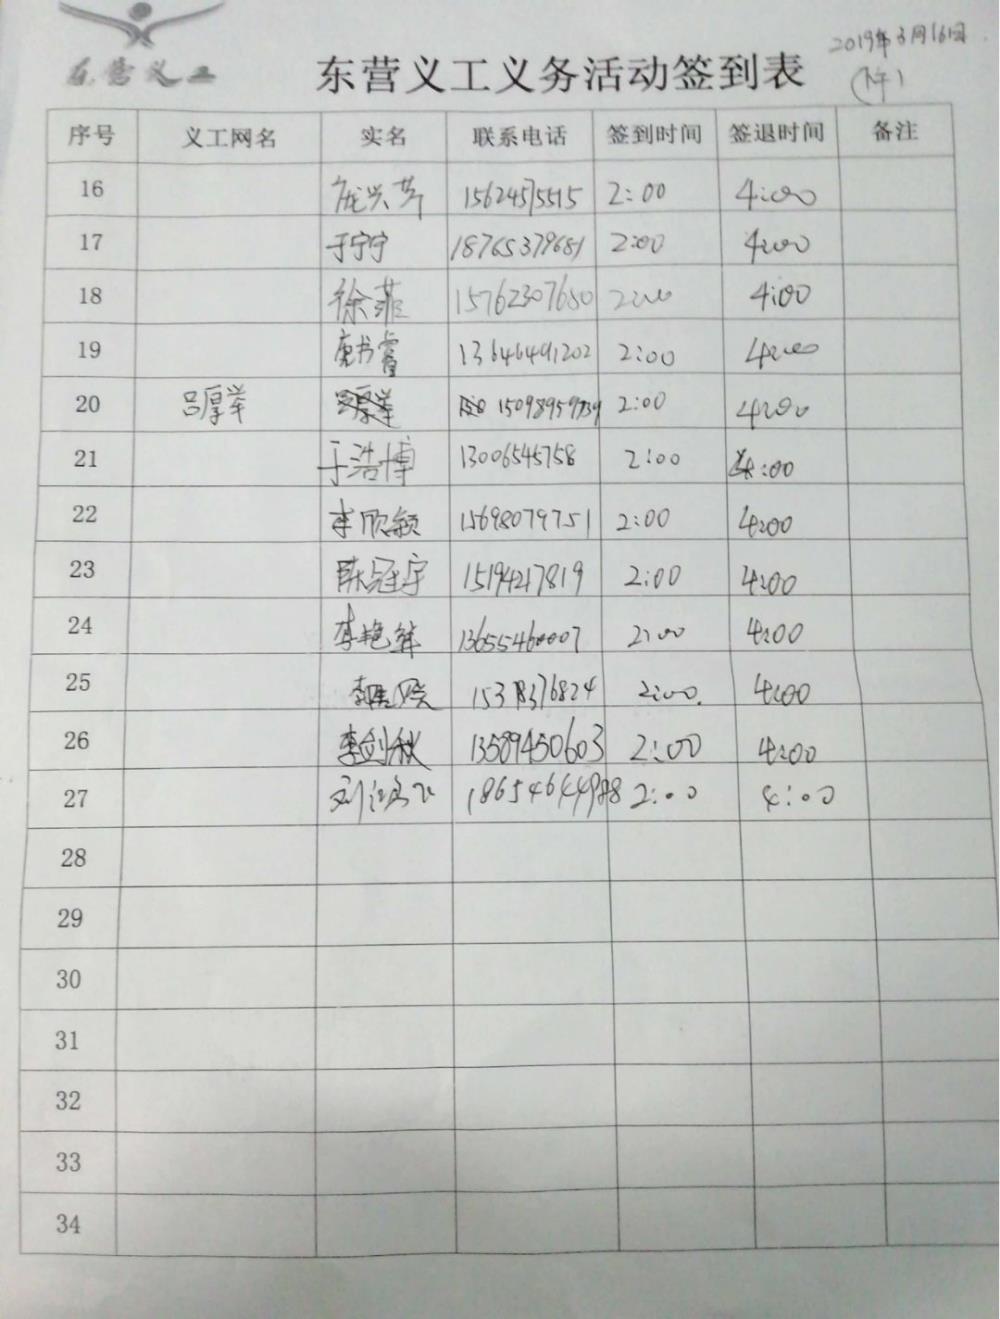 2019年3月16日
东营义工
东营义工义务活动签到表
(下午)
序号 义工网名 实名 联系电话 签到时间 签退时间 备注
16 庞兴芳 15624575515 2:00 4:00
17 于宁宁 18765379681 2:00 4:00
18 徐菲 15762307650 2:00 4:00
19 唐书睿 13646491202 2:00 4:00
20 吕厚举 15098959739 2:00 4:00
21 于浩博 13006545758 2:00 4:00
22 李欣颖 15698079751 2:00 4:00
23 陈冠宇 15194217819 2:00 4:00
24 李艳华 13655460007 2:00 4:00
25 15378376824 2:00 4:00
26 李剑秋 13589450603 2:00 4:00
27 18654644988 2:00 4:00
28
29
30
31
32
33
34